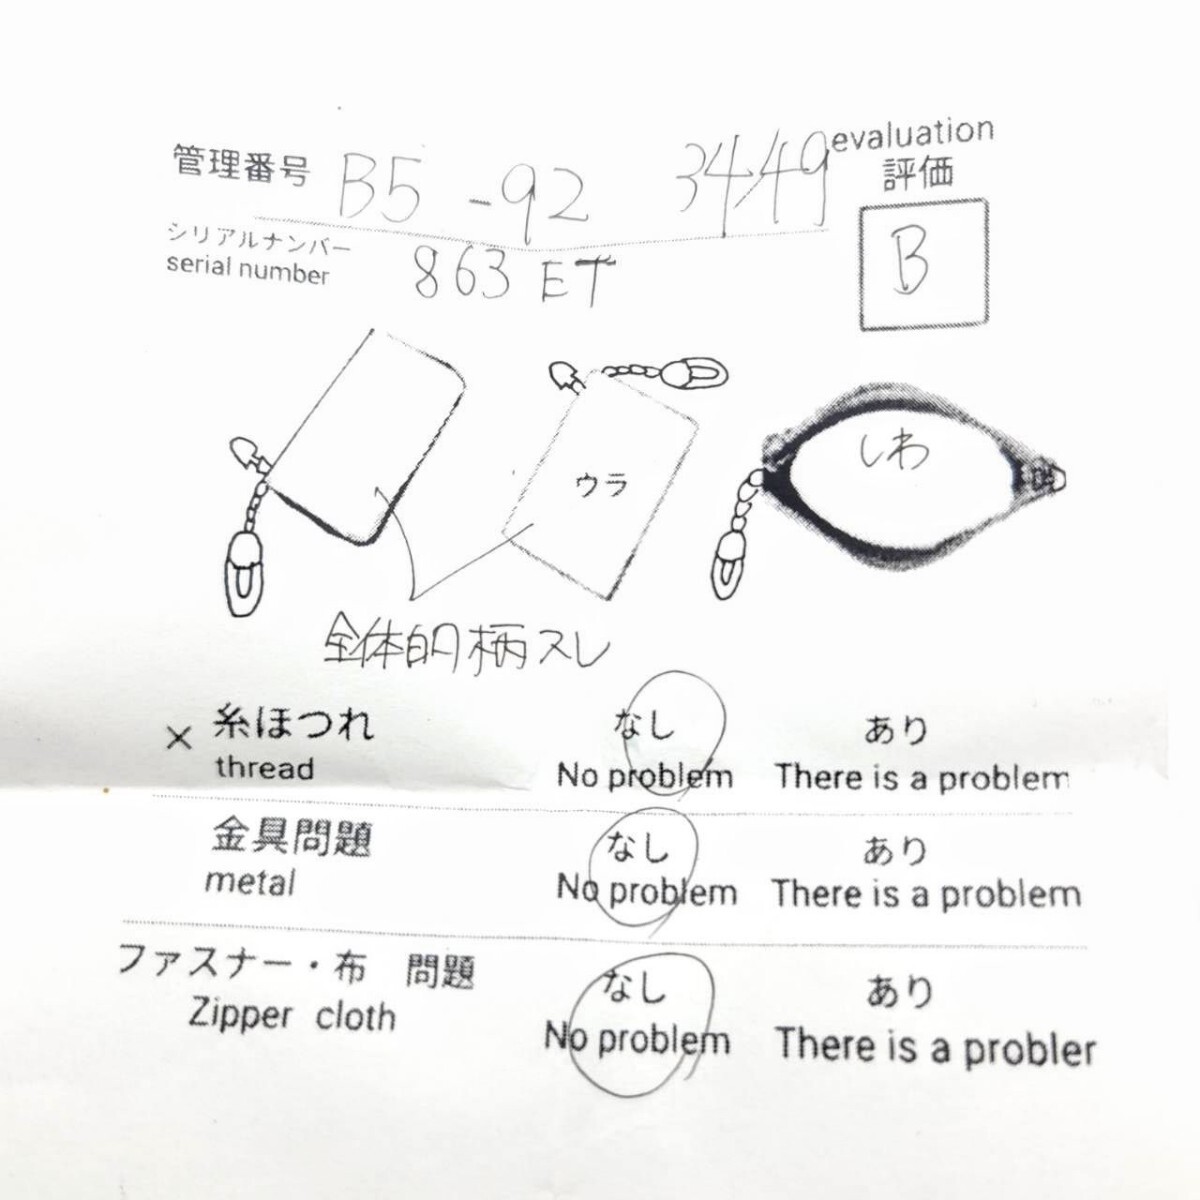 管理番号 B5-92 3449
evaluation
評価
B
シリアルナンバー
serial number
863 ET
ウラ
しわ
全体的柄スレ
× 糸ほつれ なし あり
thread No problem There is a problem
金具問題 なし あり
metal No problem There is a problem
ファスナー・布 問題 なし あり
Zipper cloth No problem There is a probler